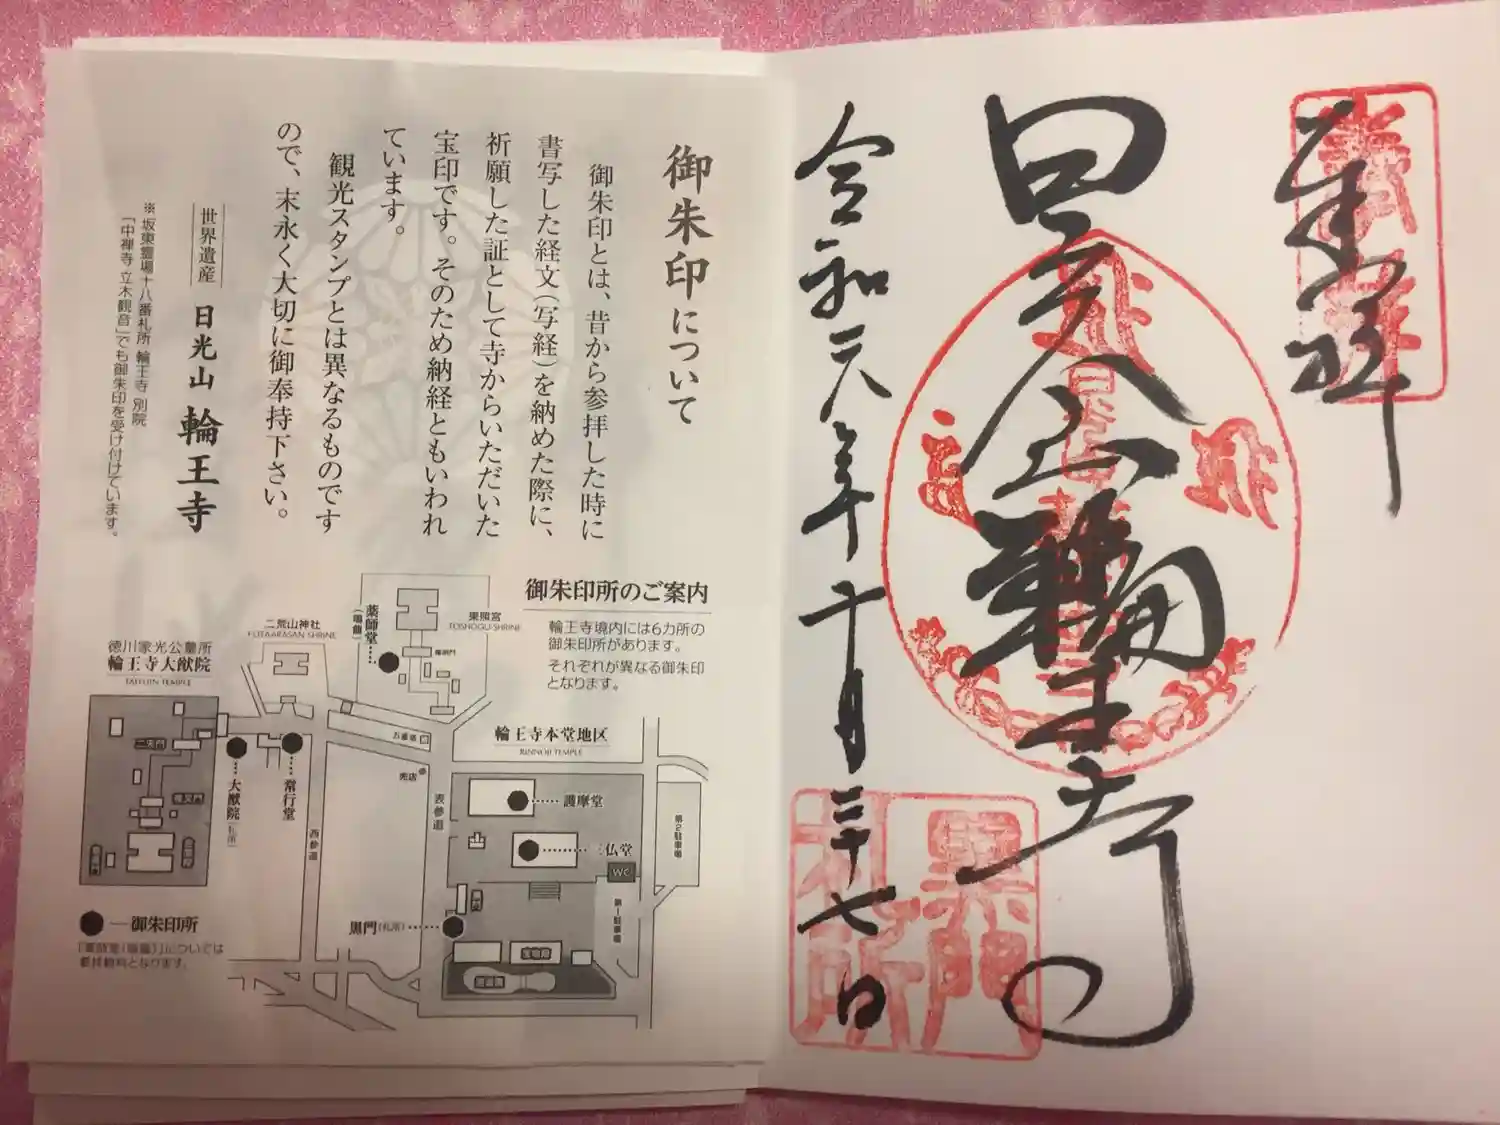 奉拝
日光山輪王寺
令和六年十月二十七日
黒門
札所
御朱印について
御朱印とは、昔から参拝した時に
書写した経文(写経)を納めた際に、
祈願した証として寺からいただいた
宝印です。そのため納経ともいわれ
ています。
観光スタンプとは異なるものです
ので、末永く大切に御奉持下さい。
世界遺産 日光山 輪王寺
※坂東霊場十八番札所 輪王寺 別院
「中禅寺 立木観音」でも御朱印を受け付けています。
御朱印所のご案内
輪王寺境内には6カ所の
御朱印所があります。
それぞれが異なる御朱印
となります。
東照宮
TOSHOGU SHRINE
陽明門
薬師堂
(鳴龍)
二荒山神社
FUTAARASAN SHRINE
徳川家光公墓所
輪王寺大猷院
TAIYUIN TEMPLE
二天門
夜叉門
大猷院
(札所)
常行堂
西参道
五重塔
売店
表参道
輪王寺本堂地区
RINNOJI TEMPLE
護摩堂
三仏堂
WC
第2駐車場
第1駐車場
黒門(札所)
宝物殿
逍遥園
●―御朱印所
「薬師堂(鳴龍)」については
要拝観料となります。